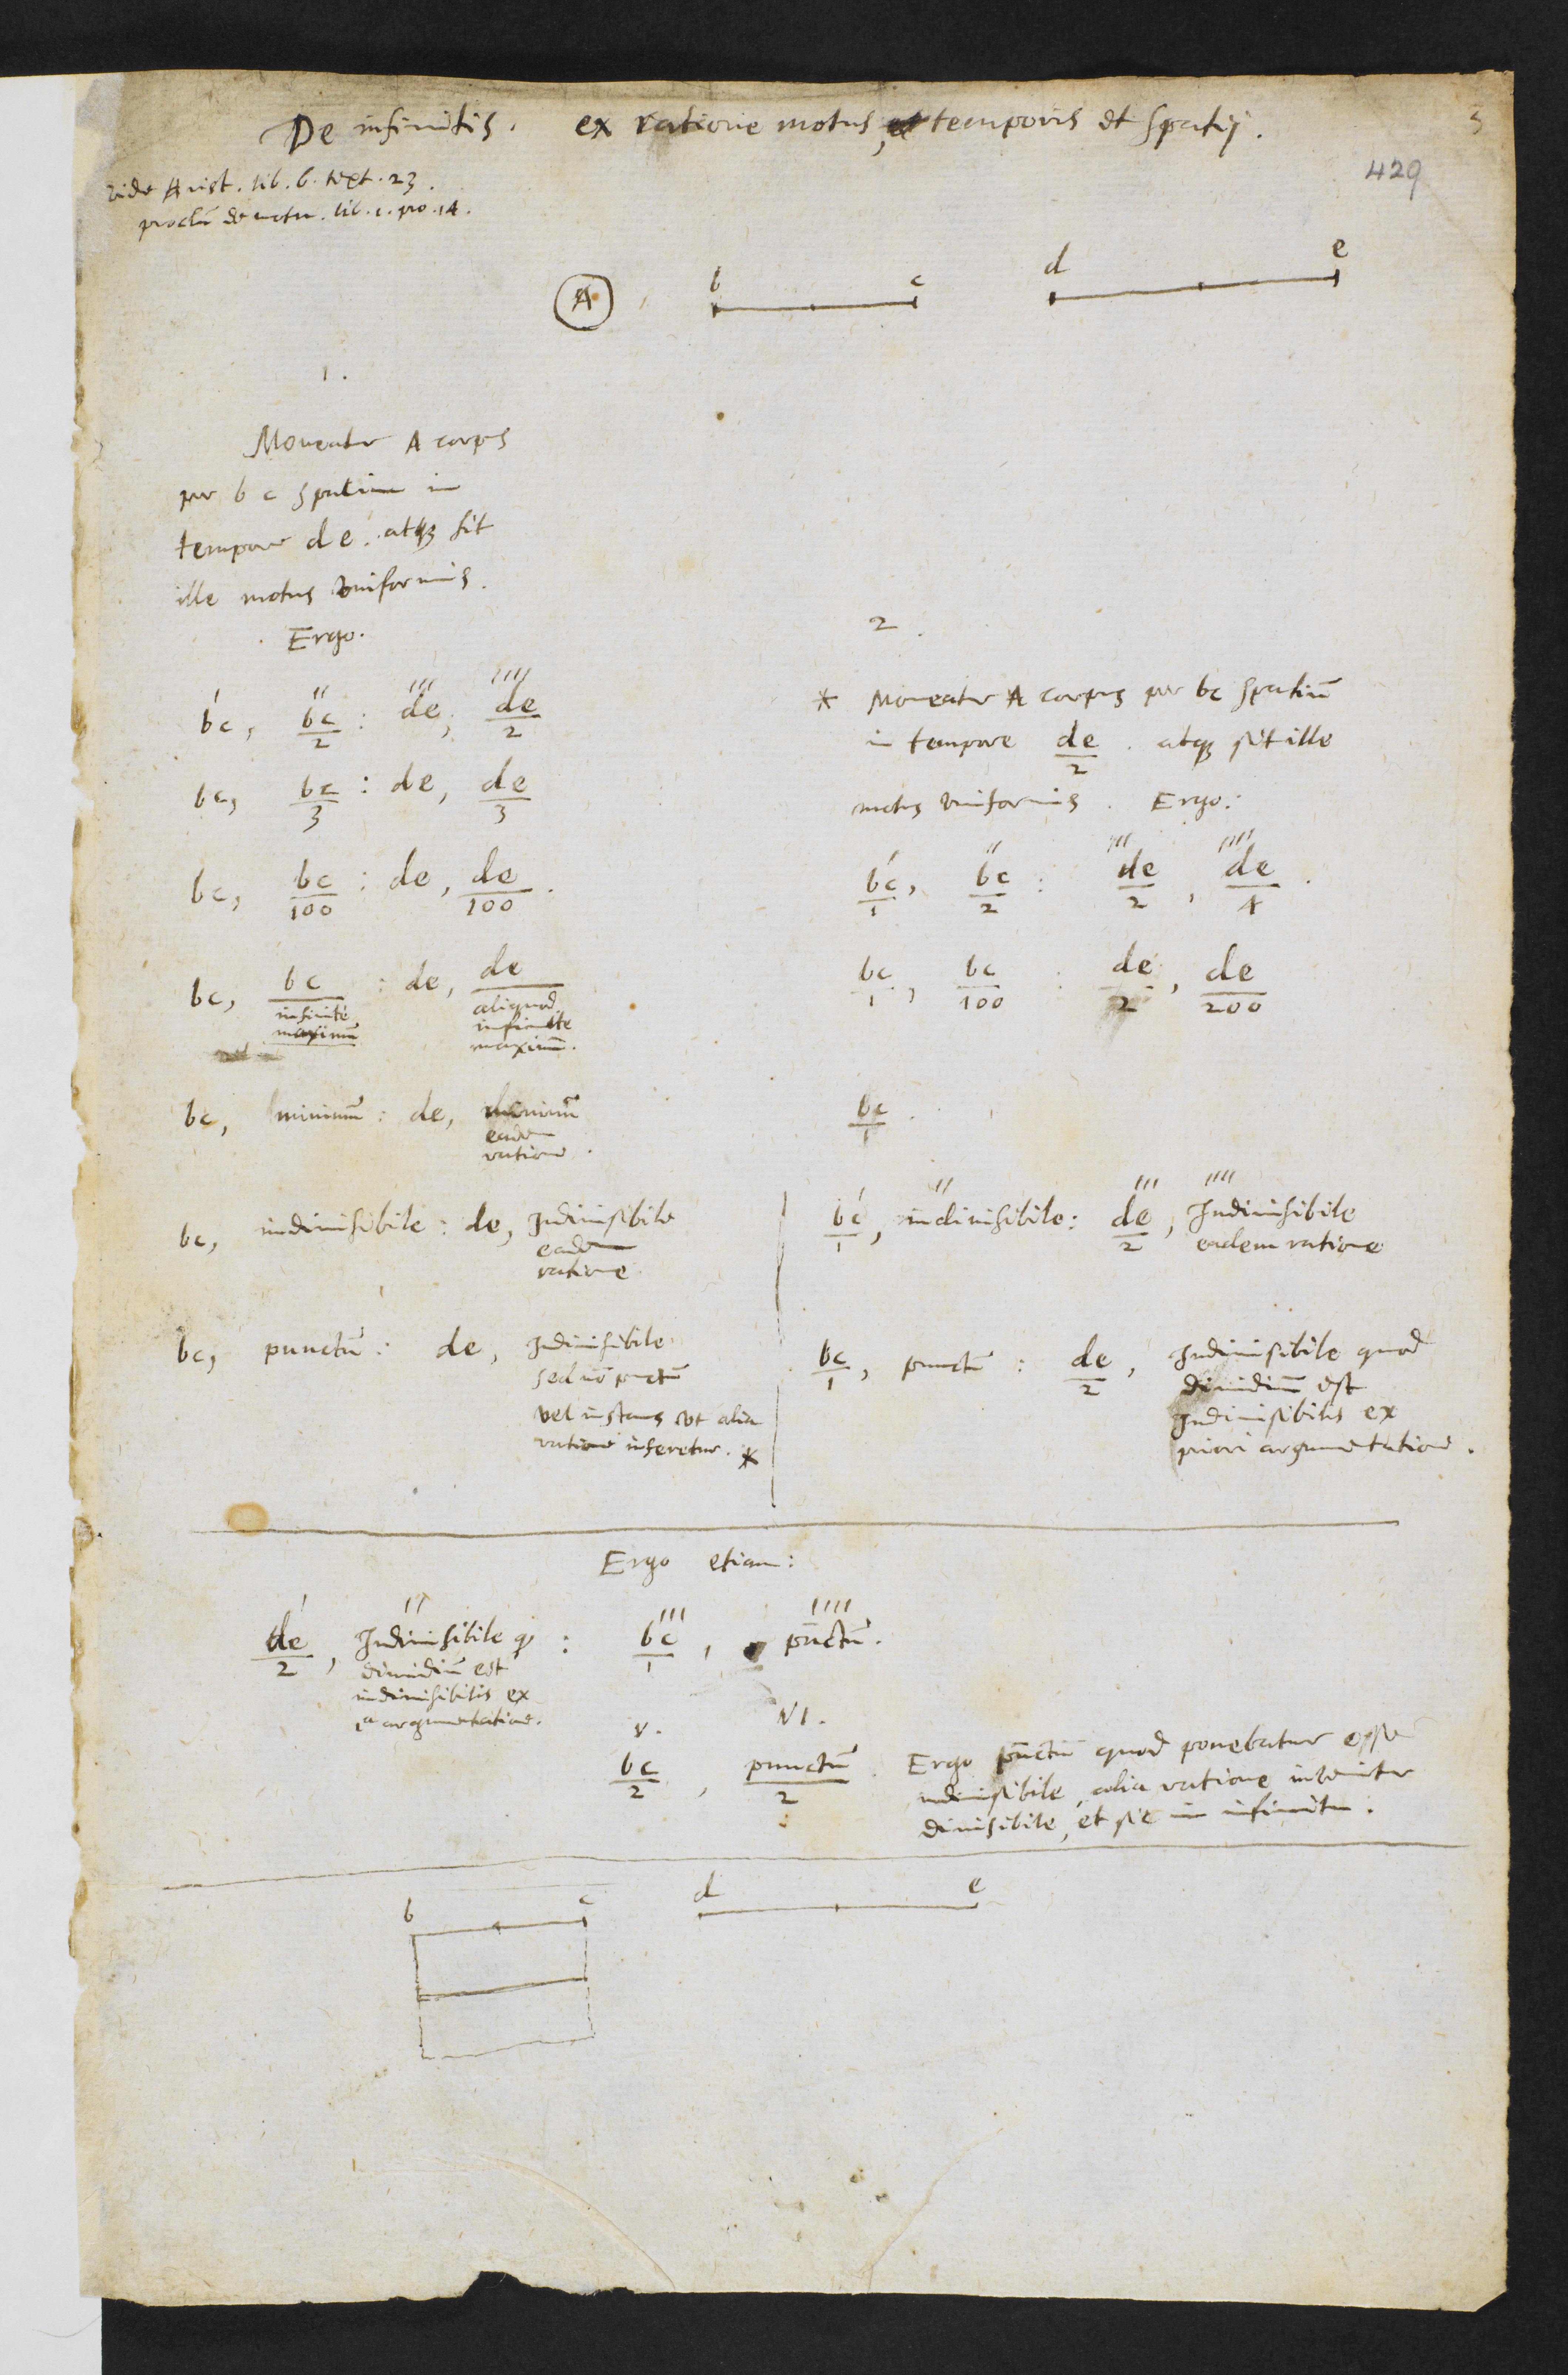 De infinitis. ex ratione motus, temporis et spatij.
3
429
vide Arist. lib. 6. text. 23.
proclũ de motu. lib. 1. pro. 14.
A
b c
d e
1.
Moveatur A corpus
per b c spatium in
tempore de. atq sit
ille motus uniformis.
Ergo.
' '' ''' ''''
bc, bc/2 : de, de/2
bc, bc/3 : de, de/3
bc, bc/100 : de, de/100.
bc, bc/infinitè maximũ : de, de/aliquod infinite maximũ.
bc, minimũ : de, minimũ
eadem
ratione.
bc, indivisibile : de, Indivisibile
eadem
ratione
bc, punctũ : de, Indivisibile
sed nõ punctũ
vel instans ut alia
ratione inferetur. *
2.
* Moveatur A corpus per bc spatiũ
in tempore de/2. atq sit ille
motus uniformis. Ergo:
' '' ''' ''''
bc/1, bc/2 : de/2, de/4.
bc/1, bc/100 : de/2, de/200
bc/1.
' '' ''' ''''
bc/1, indivisibile : de/2, Indivisibile
eadem ratione
bc/1, punctũ : de/2, Indivisibile quod
dimidiũ est
Indivisibilis ex
priori argumentatione.
Ergo etiam:
' '' ''' ''''
de/2, Indivisibile q : bc/1, punctũ.
dimidiũ est
indivisibilis ex
1ª argumentatione.
V. VI.
bc/2, punctũ/2. Ergo punctũ quod ponebatur esse
indivisibile, alia ratione invenitur
divisibile, et sic in infinitu.
b c
d e